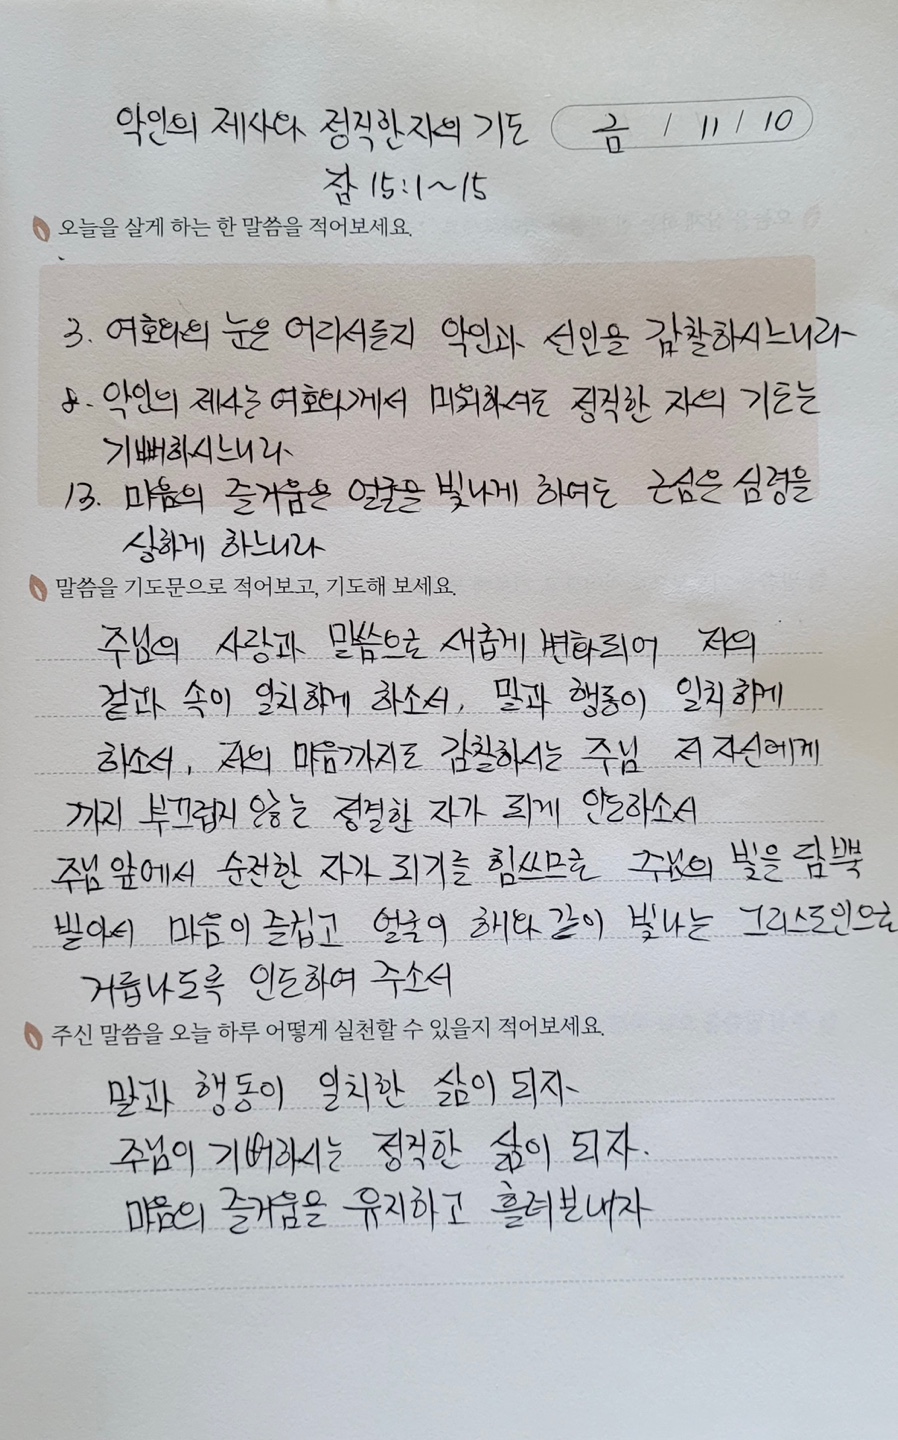 악인의 제사와 정직한자의 기도 금 / 11 / 10
잠 15:1~15
오늘을 살게 하는 한 말씀을 적어보세요.
3. 여호와의 눈은 어디서든지 악인과 선인을 감찰하시느니라
8. 악인의 제사는 여호와께서 미워하셔도 정직한 자의 기도는
기뻐하시느니라
13. 마음의 즐거움은 얼굴을 빛나게 하여도 근심은 심령을
상하게 하느니라
말씀을 기도문으로 적어보고, 기도해 보세요.
주님의 사랑과 말씀으로 새롭게 변화되어 저의
겉과 속이 일치하게 하소서, 말과 행동이 일치하게
하소서, 저의 마음까지도 감찰하시는 주님 저 자신에게
까지 부끄럽지 않는 정결한 자가 되게 인도하소서
주님 앞에서 순전한 자가 되기를 힘쓰므로 주님의 빛을 담뿍
받아서 마음이 즐겁고 얼굴이 해와 같이 빛나는 그리스도인으로
거듭나도록 인도하여 주소서
주신 말씀을 오늘 하루 어떻게 실천할 수 있을지 적어보세요.
말과 행동이 일치한 삶이 되자
주님이 기뻐하시는 정직한 삶이 되자.
마음의 즐거움을 유지하고 흘려보내자